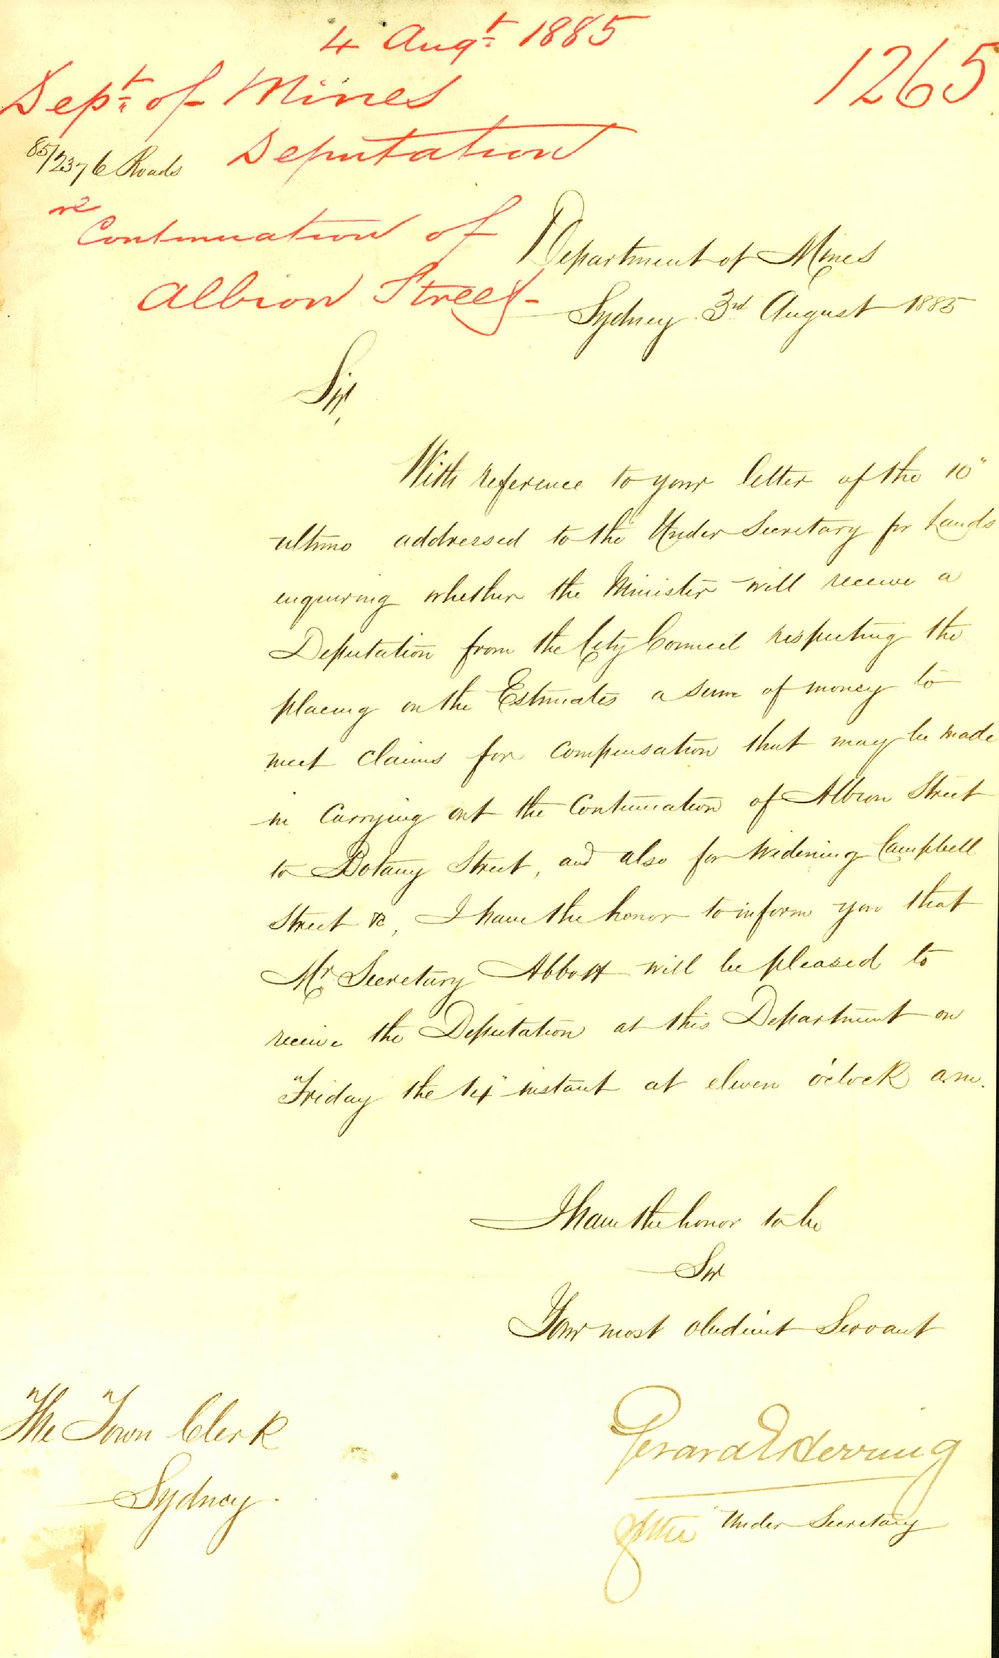 4 Augt. 1885
1265
Dept. of Mines
Deputation
85/2376 Roads
re
Continuation of
Albion Street -
Department of Mines
Sydney 3rd August 1885
Sir,
With reference to your letter of the 10"
ultimo addressed to the Under Secretary for Lands
enquiring whether the Minister will receive a
Deputation from the City Council respecting the
placing on the Estimates a sum of money to
meet claims for compensation that may be made
in carrying out the Continuation of Albion Street
to Botany Street, and also for widening Campbell
Street &c, I have the honor to inform you that
Mr Secretary Abbott will be pleased to
receive the Deputation at this Department on
Friday the 14" instant at eleven o'clock a.m.
I have the honor to be
Sir
Your most obedient Servant
Gerard E Herring
for the Under Secretary
The Town Clerk
Sydney.